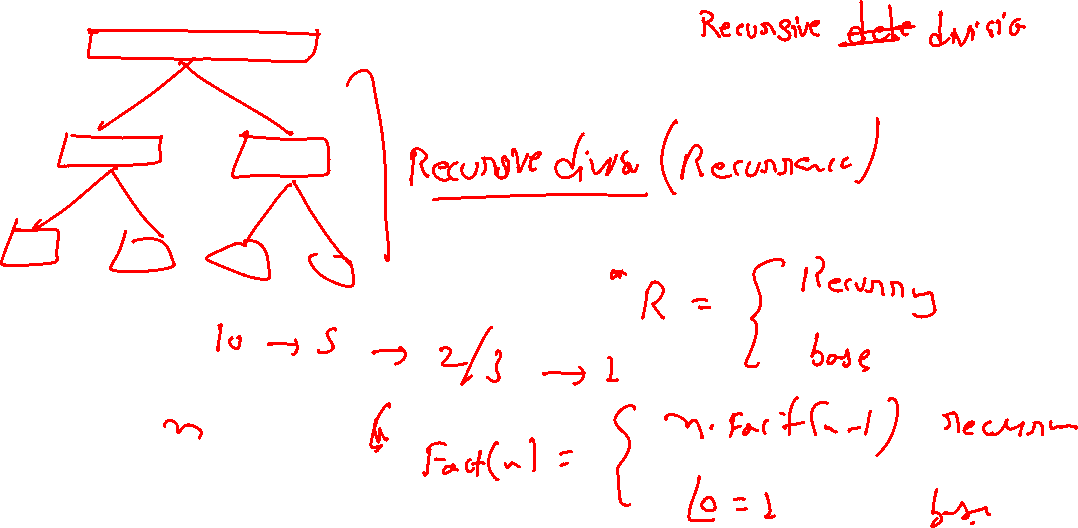 Recursive division
Recursive division (Recurrence)
R = { Recurring
base
10 → 5 → 2/3 → 1
n
Fact(n) = { n. Fact(n-1) recursion
L0 = 1 base